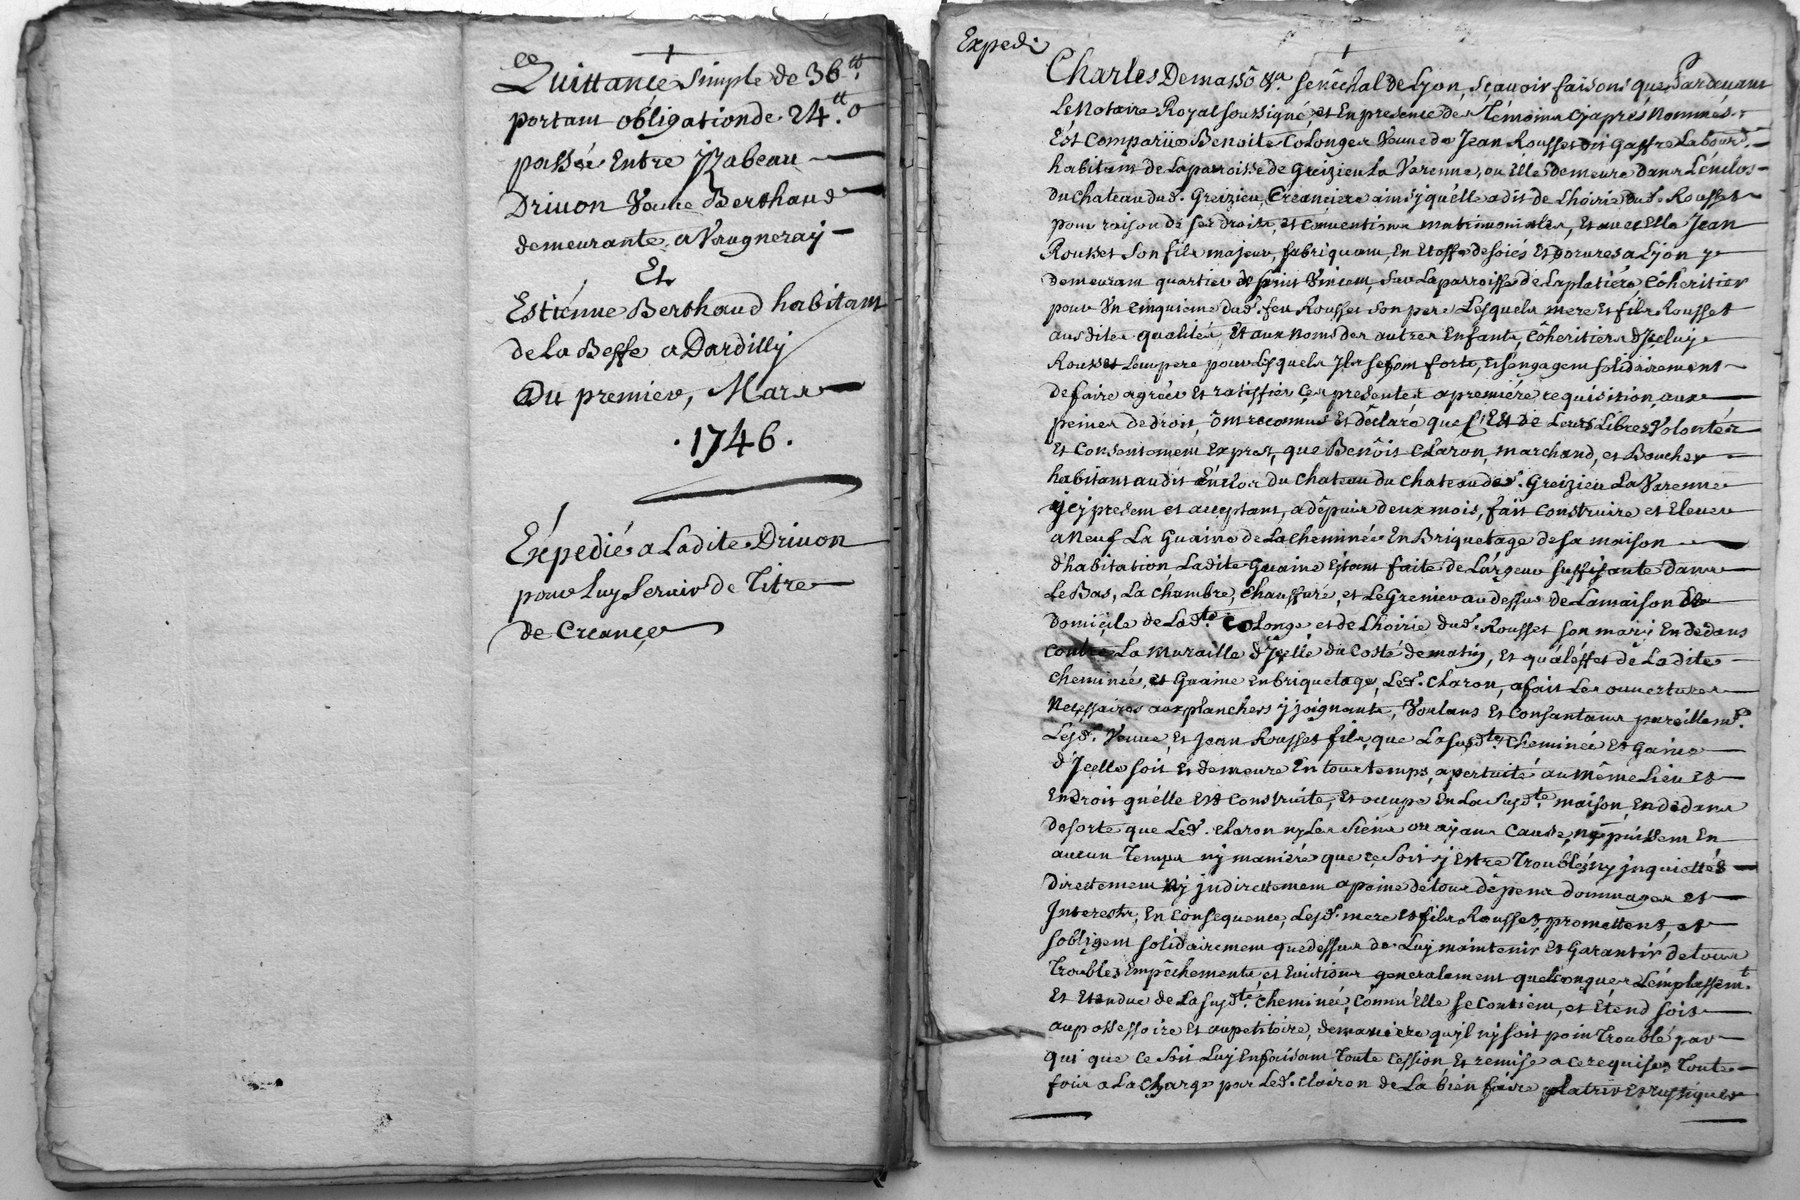 Quittance simple de 36tt.
portant obligation de 24tt. 0
passée Entre Yzabeau
Driuon Veuue Berthaud
demeurante a Vaugneray
Et
Estiénne Berthaud habitant
de La Beffe a Dardilly
Du premier, Mars
. 1746 .
Expedié a Ladite Driuon
pour Luy Seruir de Titre
de Creance
Exped.
Charles Demasso &a. senéchal de Lyon, sçauoir faisons que Pardeuant
Le Notaire Royal soussigné, et En presence des Témoins cy aprés Nommés,
Est Comparüe Benoite Colonge Veuue de Jean Rousset dit Gaffre Labour.
habitant de La paroisse de Greizieu La Varenne, ou Elle demeure dans L'énclos
du chateau dud. Greizieu, Creanciere ainsy qu'elle a dit de L'hoirie dud. Rousset
pour raison de ses droits, et Conuentions matrimoniales, Et auec Elle Jean
Rousset son fils majeur, fabriquant En Etoffe de soiés Et Dorures a Lyon y
demeurant quartier de saint Vincent, sur La parroisse de La platiére Cóheritier
pour Un Cinquieme dud. feu Rousset son pere Lesquels mere Et fils Rousset
ausdites qualités, Et aux Noms des autres Enfants, Cóheritiers d'Jceluy
Rousset Leur pere pour Lesquels Jls se font forts, Et s'engagent solidairement
de faire agréer Et ratiffier Ces presentes a premiére requisition, aux
peines de droit, ont reconnus Et déclaré que C'Est De Leurs Libres Volontés
Et Consentement Expres, que Benôit Claron, marchand, et Boucher
habitant audit Enclos du Chateau du Chateau de d. Greizieu La Varenne
ycy present et acceptant, a dépuis deux mois, fait Construire et Eleuer
a Neuf La Guaine de La cheminée En Briquetage de sa maison
d'habitation Ladite Guaine Etant faite de Largeur suffisante dans
Le Bas, La chambre, Chauffuré, et Le Grenier au dessus de La maison de
Domicile de Lad.te Colonge et de L'hoirie dud. Rousset son mary En dedans
contre La muraille d'Jcelle du Costé de matin, Et qu'a L'éffet de Ladite
cheminée, et Guaine En briquetage, Led. Claron, a fait Les ouuertures
Necessaires aux planchers y joignants, Voulans Et Consentans pareillem.t
Lesd. Veuue, Et Jean Rousset fils, que La susd.te Cheminée Et gaine
d'Jcelle soit Et demeure En tout temps, a pertuité au Même Lieu et
Endroit qu'elle Est Construite, Et occupe En La susd.te maison, En dedans
de sorte que Led. Claron ny Les siens ou ayans Cause, ny puissent En
aucun Temps ny maniéré que ce soit y Estre Troublés ny jnquiettés
directement Ny jndirectement a peine de tous dépens dommages et
Jnterests; En Consequence, Lesd. mere Et fils Rousset, promettent, et
s'obligent solidairement que dessus de Luy maintenir Et Garantir de tous
Troubles Empêchements, et Euictions generalement quelconques L'emplassem.t
Et Etendue de La susd.te Cheminée, Comm'Elle se Contient, et S'étend soit
au possessoire Et au petitoire, de maniere qu'jl ny soit point Troublé par
qui que Ce soit Luy En faisant Toute Cession Et remise a ce requises Toute
fois a La Charge par Led. Claron de La bien faire platrir Et rustiquer